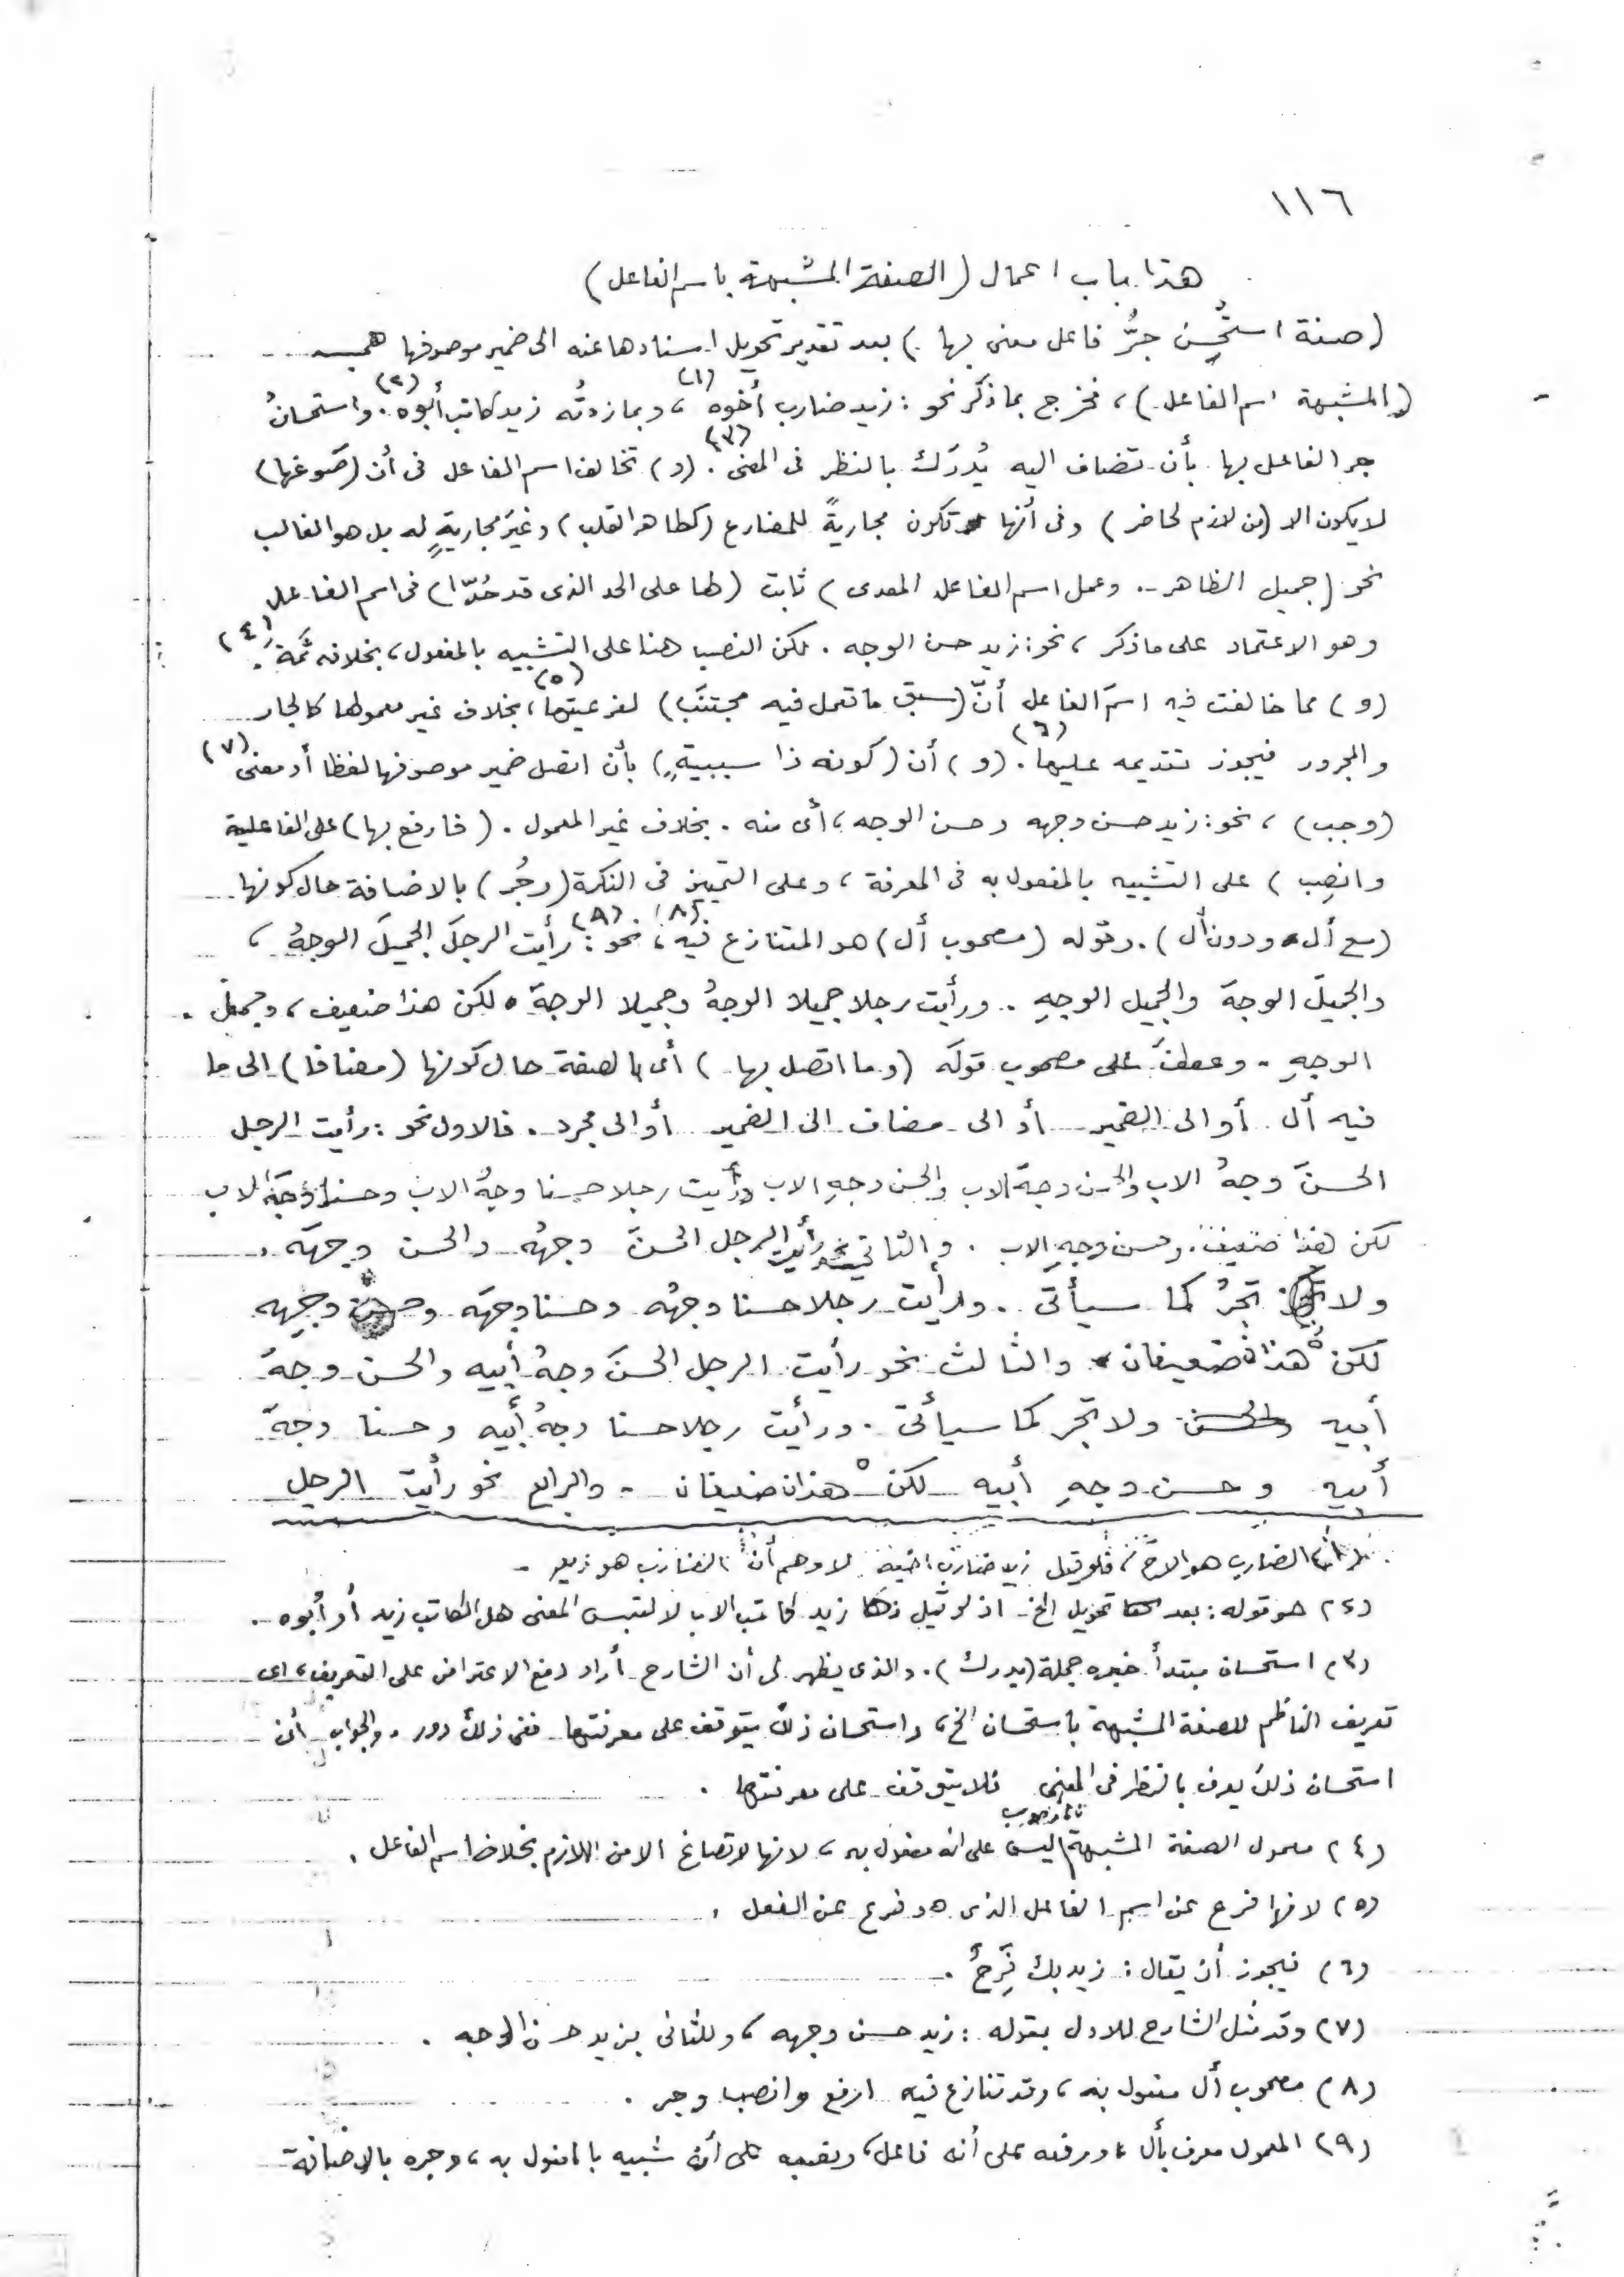 ١١٦
هذا باب اعمال (الصفة المشبهة باسم الفاعل)
(صفة استُحْسِن جرُّ فاعل معنى بها) بعد تقدير تحويل اسنادها عنه الى ضمير موصوفها هى
(المشبهة اسم الفاعل)، فخرج بما ذكر نحو: زيد ضارب أخوه (١)، وبما زدتُه زيد كاتب أبوه (٢). واستحسانُ
جر الفاعل بها بأن تضاف اليه يُدرَك بالنظر فى المعنى (٣). (و) تخالف اسم الفاعل فى أن (صَوغها)
لا يكون الا (من لازم لحاضر) وفى أنها تكون مجاريةً للمضارع (كطاهر القلب) وغيرَ مجاريةٍ له بل هو الغالب
نحو (جميل الظاهر. وعمل اسم الفاعل المعدى) ثابت (لها على الحد الذى قد حُدّا) فى اسم الفاعل
وهو الاعتماد على ما ذكر، نحو: زيد حسن الوجه. لكن النصب هنا على التشبيه بالمفعول، بخلافه ثَمَّة (٤).
(و) مما خالفت فيه اسمَ الفاعل أنّ (سبق ما تعمل فيه مجتنَب) لفرعيتها (٥)، بخلاف غير معمولها كالجار
والمجرور فيجوز تقديمه عليها (٦). (و) أن (كونه ذا سببيةٍ) بأن اتصل ضمير موصوفها لفظا أو معنى (٧)
(وجب)، نحو: زيد حسن وجهه وحسن الوجه، أى منه. بخلاف غير المعمول. (فارفع بها) على الفاعلية
(وانصِب) على التشبيه بالمفعول به فى المعرفة، وعلى التمييز فى النكرة (وجُر) بالاضافة حال كونها
(مع أل ودون أل). وقوله (مصحوب أل) هو المتنازع فيه (٨)، نحو (٩): رأيت الرجلَ الجميلَ الوجهُ،
والجميلَ الوجهَ والجميل الوجهِ. ورأيت رجلا جميلا الوجهُ وجميلا الوجهَ، لكن هذا ضعيف، وجميلَ
الوجهِ. وعطفَ على مصحوب قولَه (وما اتصل بها) أى بالصفة حال كونها (مضافا) الى ما
فيه أل أو الى الضمير أو الى مضاف الى الضمير أو الى مجرد. فالاول نحو: رأيت الرجل
الحسنَ وجهُ الاب والحسن وجهَ الاب والحسن وجهِ الاب ورأيت رجلا حسنا وجهُ الاب وحسنا وجهَ الاب
لكن هذا ضعيف. وحسن وجهِ الاب. والثانى نحو رأيت الرجل الحسنَ وجهُه والحسن وجهَه.
ولا تجرُ كما سيأتى. ورأيت رجلا حسنا وجهُه وحسنا وجهَه وحسن وجهِه
لكن هذان ضعيفان. والثالث نحو رأيت الرجل الحسنَ وجهُ أبيه والحسن وجهَ
أبيه ولا تجر كما سيأتى. ورأيت رجلا حسنا وجهُ أبيه وحسنا وجهَ
أبيه وحسن وجهِ أبيه لكن هذان ضعيفان. والرابع نحو رأيت الرجل
(١) الضارب هو الاخ، فلو قيل زيد ضارب اخيه لاوهم أن الضارب هو زيد.
(٢) هو قوله: بعد تحويل الخ. اذ لو قيل زيد كاتب الاب لالتبس المعنى هل الكاتب زيد أو أبوه.
(٣) استحسان مبتدأ خبره جملة (يدرك). والذى يظهر لى أن الشارح أراد دفع الاعتراض على التعريف، اى
تعريف الناظم للصفة المشبهة باستحسان الخ، واستحسان ذلك يتوقف على معرفتها ففى ذلك دور. والجواب أن
استحسان ذلك يعرف بالنظر فى المعنى فلا يتوقف على معرفتها.
(٤) معمول الصفة المشبهة المنصوب ليس على انه مفعول به، لانها لا تصاغ الا من اللازم بخلاف اسم الفاعل.
(٥) لانها فرع عن اسم الفاعل الذى هو فرع عن الفعل.
(٦) فيجوز أن يقال: زيد بك فَرِحٌ.
(٧) وقد مثل الشارح للاول بقوله: زيد حسن وجهه، وللثانى بزيد حسن الوجه.
(٨) مصحوب أل مفعول به، وقد تنازع فيه ارفع وانصب وجر.
(٩) المعمول معرف بأل، ورفعه على أنه فاعل، ونصبه على أنه شبيه بالمفعول به، وجره بالاضافة